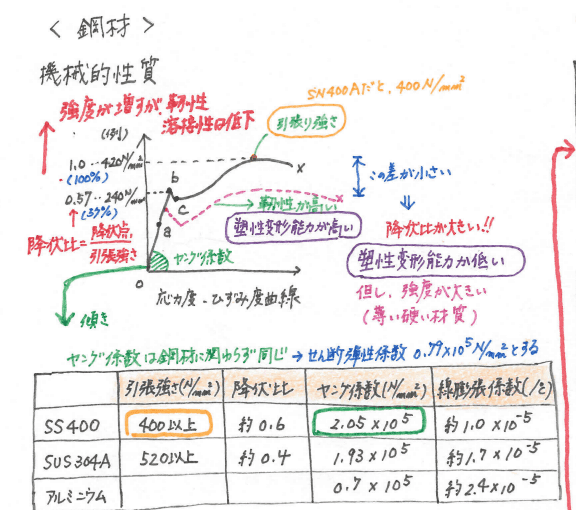 < 鋼材 >
機械的性質
SN400Aだと、400N/mm²
強度が増すが、靭性
溶接性は低下
(例)
引張り強さ
1.0‥420N/mm²
(100%)
0.57‥240N/mm²
(57%)
降伏比=降伏点/引張強さ
b
c
a
x
x
0
靭性が高い
塑性変形能力が高い
ヤング係数
応力度-ひずみ度曲線
傾き
この差が小さい
⇓
降伏比が大きい!!
塑性変形能力が低い
但し、強度が大きい
(薄い硬い材質)
ヤング係数は鋼材に関わらず同じ → せん断弾性係数 0.79×10⁵N/mm²とする
引張強さ(N/mm²) 降伏比 ヤング係数(N/mm²) 線膨張係数(1/℃)
SS400 400以上 約0.6 2.05×10⁵ 約1.0×10⁻⁵
SUS304A 520以上 約0.4 1.93×10⁵ 約1.7×10⁻⁵
アルミニウム 0.7×10⁵ 約2.4×10⁻⁵